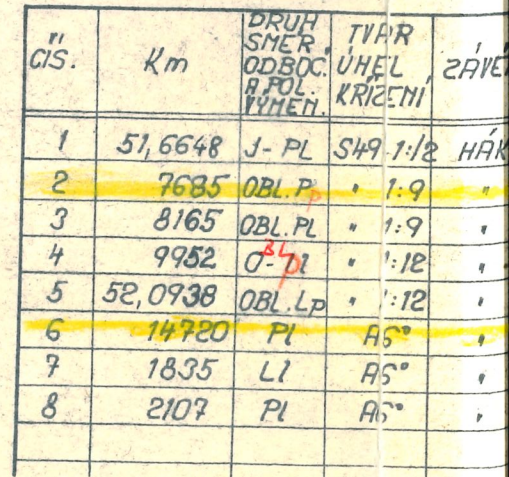 ČÍS. Km DRUH SMĚR ODBOČ. A POL. VÝMĚN. TVAR ÚHEL KŘÍŽENÍ ZÁVĚ
1 51,6648 J-PL S49 1:12 HÁK
2 7685 OBL.P " 1:9 "
3 8165 OBL.PL " 1:9 "
4 9952 " 1:12 "
5 52,0938 OBL.Lp " 1:12 "
6 14720 Pl A6° "
7 1835 Ll A6° "
8 2107 Pl A6° "